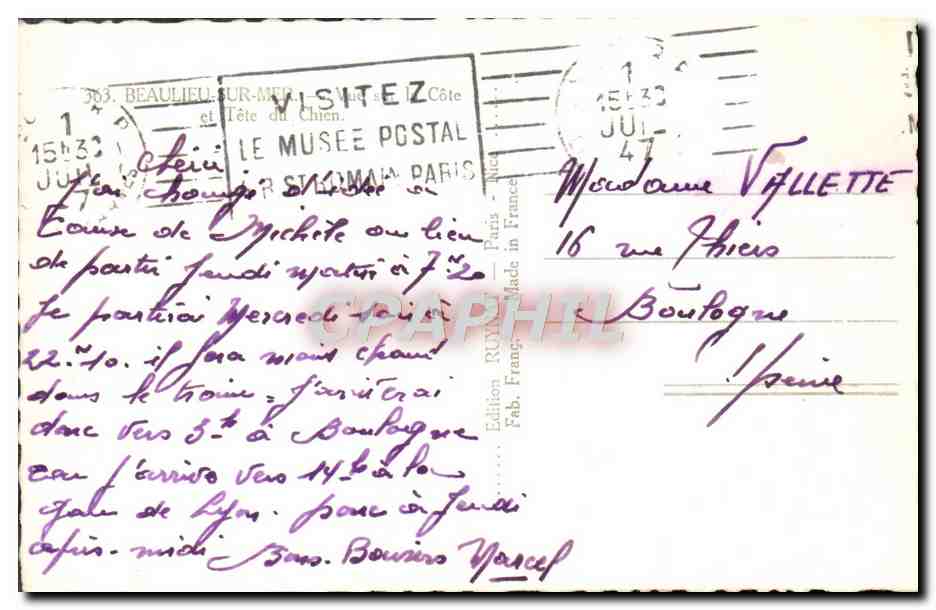 363. BEAULIEU-SUR-MER Vue sur la Côte
et Tête du Chien.
VISITEZ
LE MUSEE POSTAL
R. ST ROMAIN PARIS
1
15H30
JUIL
47
1
15H30
JUIL
47
J'ai changé d'idée a
Cause de Michèle au lieu
de partir Jeudi matin à 7h20
Je partirai Mercredi soir à
22h10. il fera moins chaud
dans le train = J'arriverai
donc vers 3h à Boulogne
car j'arrive vers 14h à la
gare de Lyon. donc à Jeudi
après-midi Bons Baisers Marcel
Edition RUY — Paris - Nice
Fab. Franç. Made in France
Madame VALLETTE
16 rue Thiers
Boulogne
s/seine
CPAPHIL